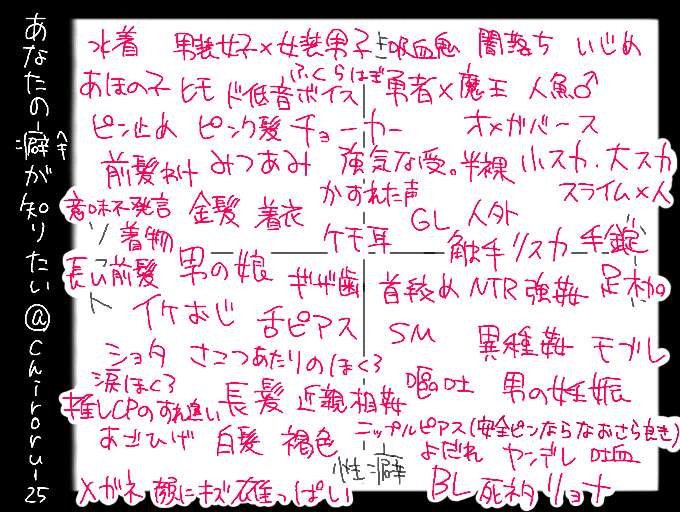 あなたの性癖が知りたい@chiroru-25
ヘキ
水着 男装女子×女装男子 吸血鬼 闇落ち いじめ
あほの子 ヒモ ド低音ボイス ふくらはぎ 勇者×魔王 人魚♂
ピン止め ピンク髪 チョーカー オメガバース
前髪わけ みつあみ 強気な受。半裸 小スカ.大スカ
意味不発言 金髪 着衣 かすれた声 GL 人外 スライム×人
着物 ケモ耳 触手 リスカ 手錠
ソフト
長い前髪 男の娘 ギザ歯 首絞め NTR 強姦 足枷
イケおじ 舌ピアス SM 異種姦 モブレ
ショタ さこつあたりのほくろ
涙ほくろ 長髪 近親相姦 嘔吐 男の妊娠
推しCPのすれ違い
あごひげ 白髪 褐色 ニップルピアス(安全ピンならなおさら良き)
よだれ ヤンデレ 吐血
性癖
メガネ 顔にキズ 雄っぱい BL 死ネタ リョナ